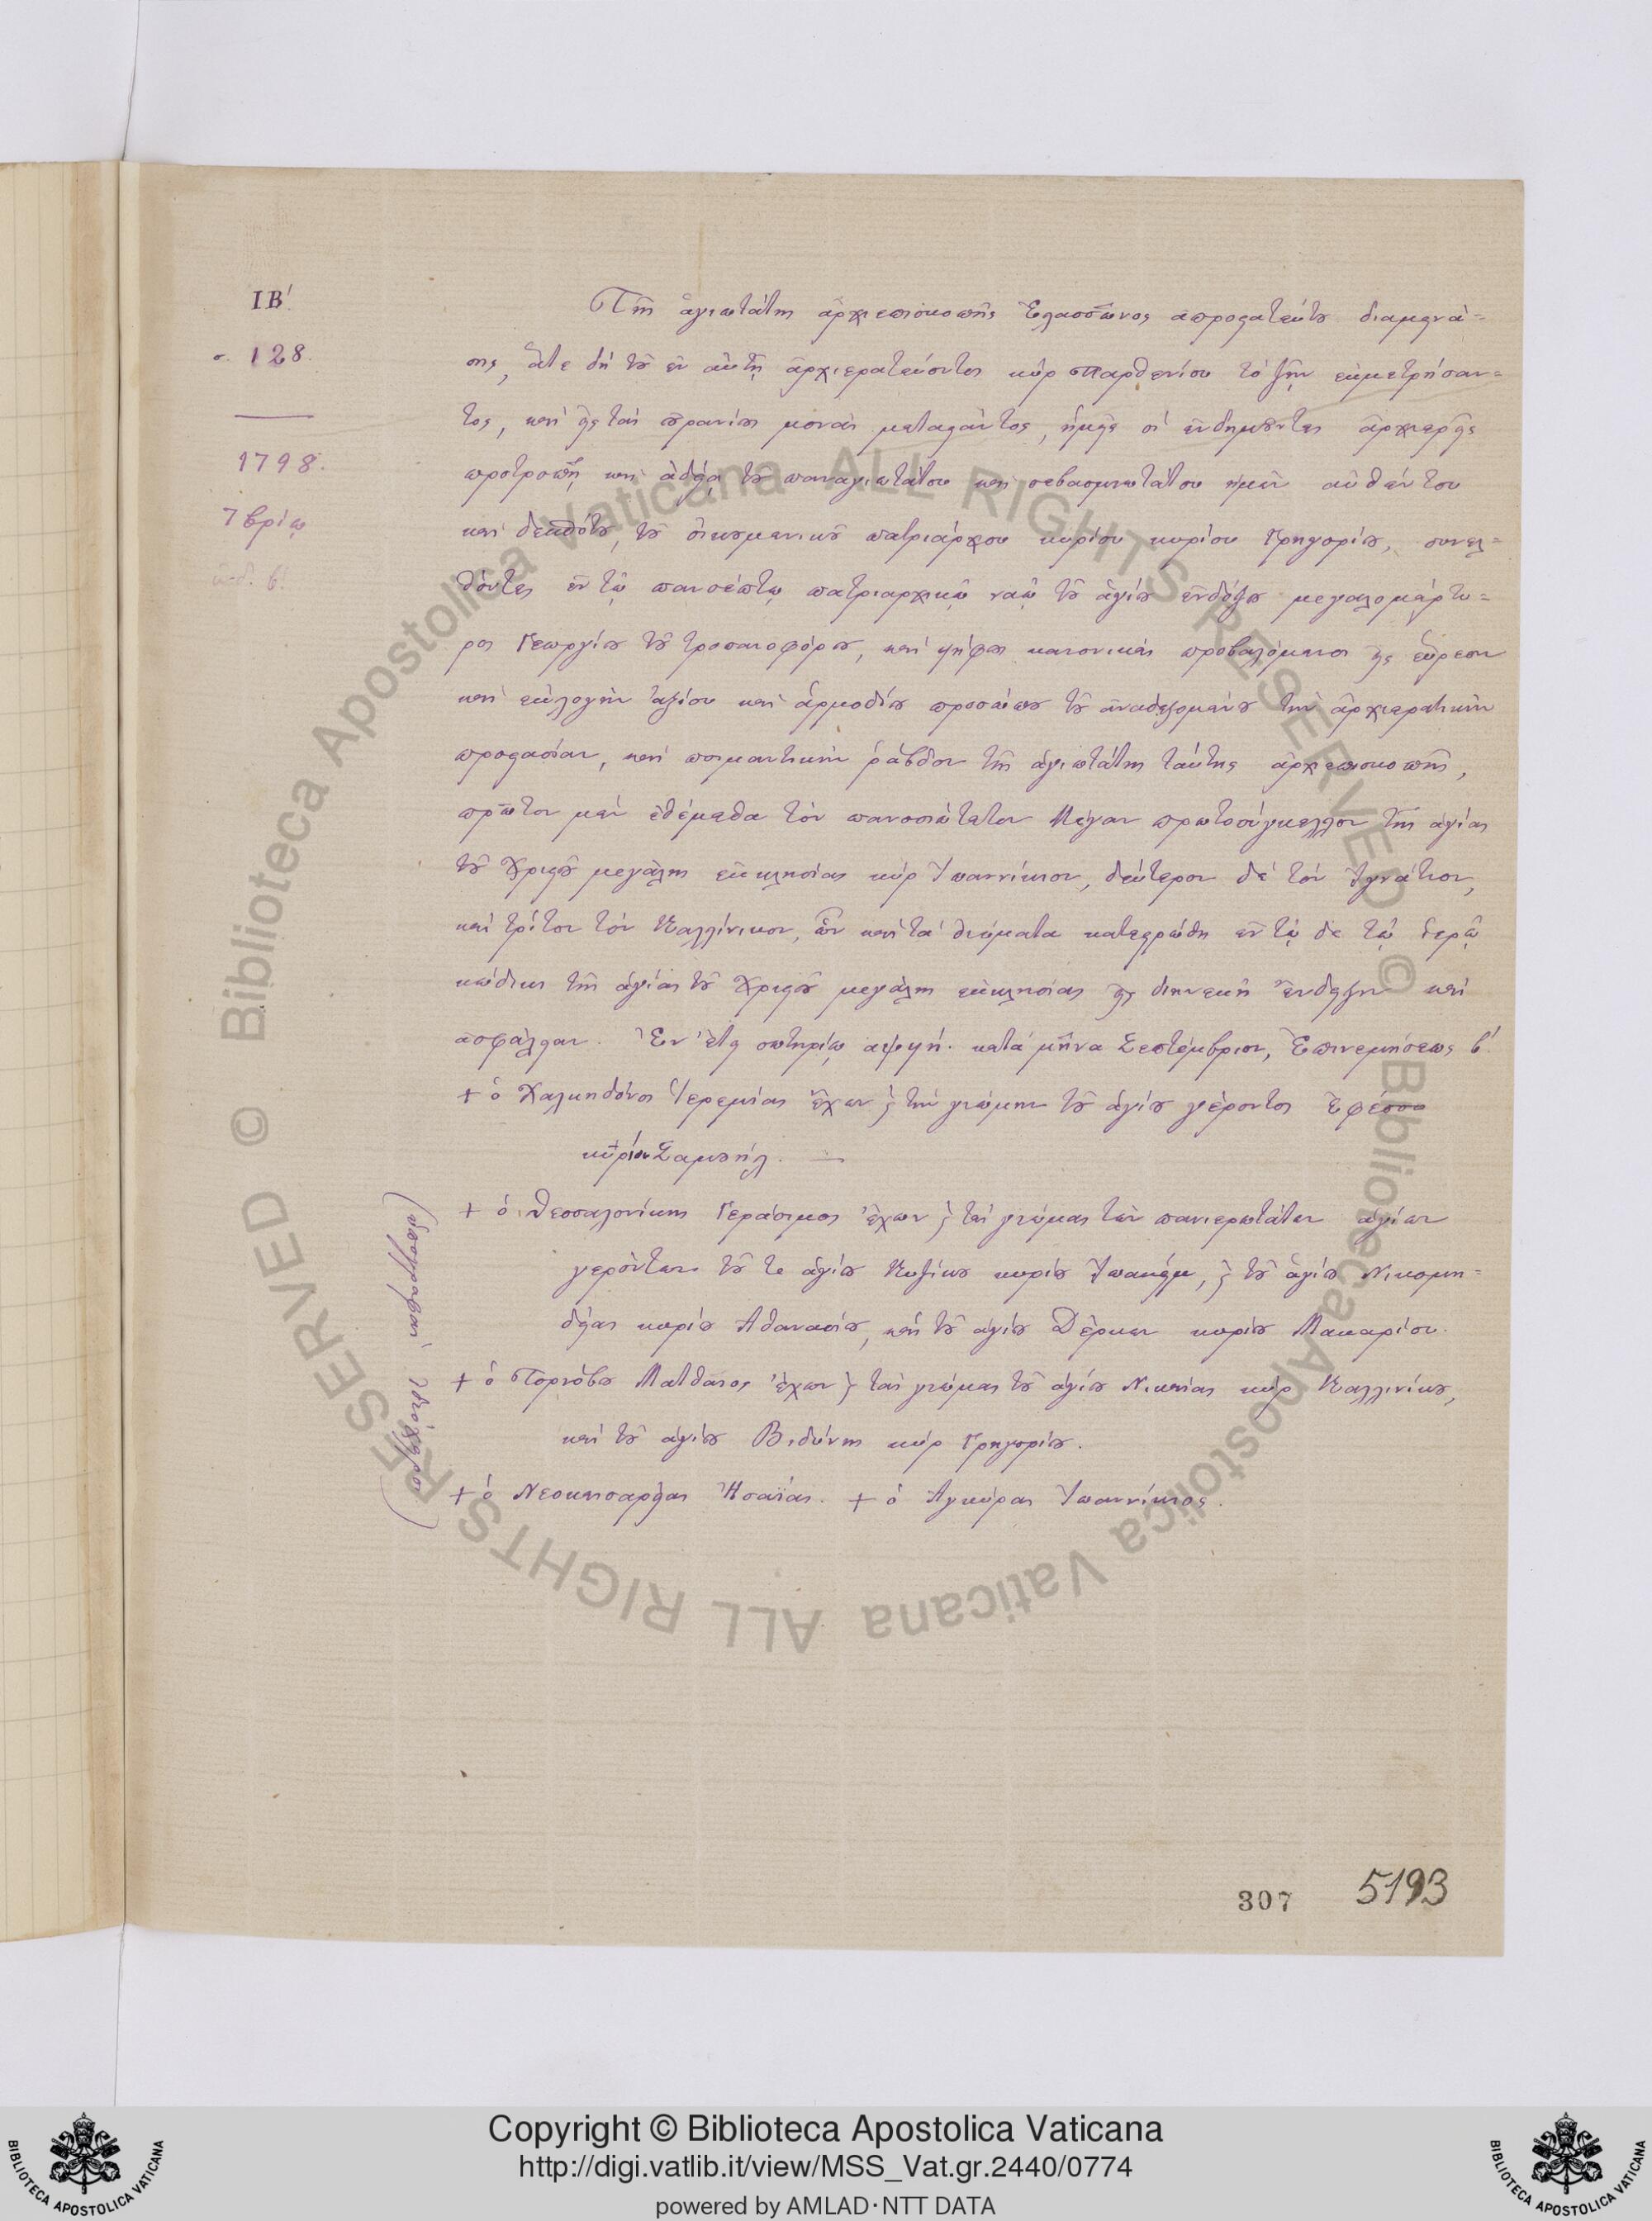 ΙΒʹ
σ. 128.
1798.
7βρίῳ
ἰνδ. βʹ.
Τῆς ἁγιωτάτης ἀρχιεπισκοπῆς Ἐλασσῶνος ἀπροστατεύτου διαμεινά-
σης, ἅτε δὴ τοῦ ἐν αὐτῇ ἀρχιερατεύοντος κὺρ Παρθενίου τὸ ζῆν ἐκμετρήσαν-
τος, καὶ εἰς τὰς οὐρανίους μονὰς μεταστάντος, ἡμεῖς οἱ ἐνδημοῦντες ἀρχιερεῖς
προτροπῇ καὶ ἀδείᾳ τοῦ παναγιωτάτου καὶ σεβασμιωτάτου ἡμῶν αὐθέντου
καὶ δεσπότου, τοῦ οἰκουμενικοῦ πατριάρχου κυρίου κυρίου Γρηγορίου, συνελ-
θόντες ἐν τῷ πανσέπτῳ πατριαρχικῷ ναῷ τοῦ ἁγίου ἐνδόξου μεγαλομάρτυ-
ρος Γεωργίου τοῦ τροπαιοφόρου, καὶ ψήφους κανονικὰς προβαλόμενοι εἰς εὕρεσιν
καὶ ἐκλογὴν ἀξίου καὶ ἁρμοδίου προσώπου τοῦ ἀναδεξομένου τὴν ἀρχιερατικὴν
προστασίαν, καὶ ποιμαντικὴν ῥάβδον τῆς ἁγιωτάτης ταύτης ἀρχιεπισκοπῆς,
πρῶτον μὲν ἐθέμεθα τὸν πανοσιώτατον Μέγαν πρωτοσύγκελλον τῆς ἁγίας
τοῦ Χριστοῦ μεγάλης ἐκκλησίας κὺρ Ἰωαννίκιον, δεύτερον δὲ τὸν Ἰγνάτιον,
καὶ τρίτον τὸν Καλλίνικον, ὧν καὶ τὰ ὀνόματα κατεστρώθη ἐν τῷ δε τῷ ἱερῷ
κώδικι τῆς ἁγίας τοῦ Χριστοῦ μεγάλης ἐκκλησίας εἰς διηνεκῆ ἔνδειξιν καὶ
ἀσφάλειαν. Ἐν ἔτει σωτηρίῳ αψϟηʹ. κατὰ μῆνα Σεπτέμβριον, Ἐπινεμήσεως βʹ.
+ ὁ Χαλκηδόνος Ἱερεμίας ἔχων ϗ τὴν γνώμην τοῦ ἁγίου γέροντος Ἐφέσου
κυρίου Σαμουήλ. —
+ ὁ Θεσσαλονίκης Γεράσιμος ἔχων ϗ τὰς γνώμας τῶν πανιερωτάτων ἁγίων
γερόντων τοῦ τε ἁγίου Κυζίκου κυρίου Ἰωακείμ, ϗ τοῦ ἁγίου Νικομη-
δείας κυρίου Ἀθανασίου, καὶ τοῦ ἁγίου Δέρκων κυρίου Μακαρίου.
+ ὁ Τορνόβου Ματθαῖος ἔχων ϗ τὰς γνώμας τοῦ ἁγίου Νικαίας κὺρ Καλλινίκου,
καὶ τοῦ ἁγίου Βιδύνης κὺρ Γρηγορίου.
+ ὁ Νεοκαισαρείας Ἡσαΐας. + ὁ Ἀγκύρας Ἰωαννίκιος.
307
5193
Copyright © Biblioteca Apostolica Vaticana
http://digi.vatlib.it/view/MSS_Vat.gr.2440/0774
powered by AMLAD·NTT DATA
BIBLIOTECA APOSTOLICA VATICANA
BIBLIOTECA APOSTOLICA VATICANA
Biblioteca Apostolica Vaticana ALL RIGHTS RESERVED ©
Biblioteca Apostolica Vaticana ALL RIGHTS RESERVED ©